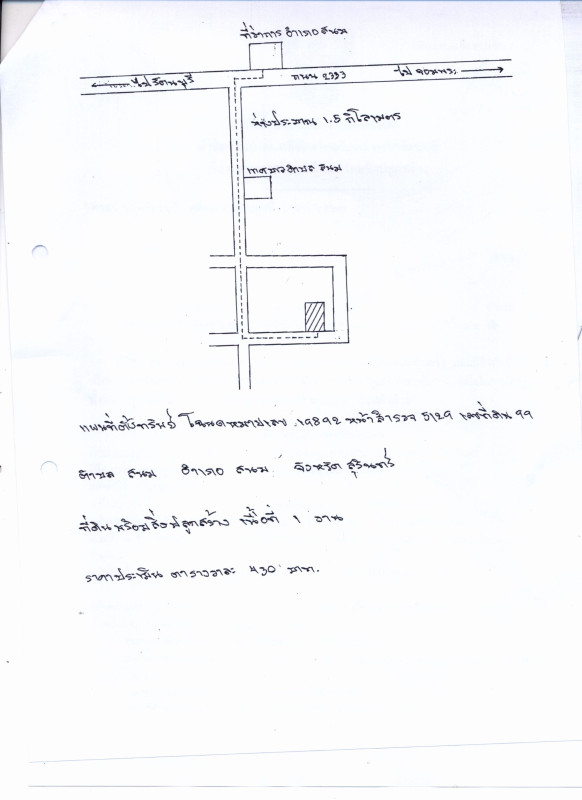 ที่ว่าการ อำเภอ สนม
ไปรัตนบุรี
ถนน 2333
ไป จอมพระ
ห่างประมาณ 1.5 กิโลเมตร
เทศบาลตำบล สนม
แผนที่ตั้งทรัพย์ โฉนดหมายเลข 19892 หน้าสำรวจ 5129 เลขที่ดิน 99
ตำบล สนม อำเภอ สนม จังหวัด สุรินทร์
ที่ดินพร้อมสิ่งปลูกสร้าง เนื้อที่ 1 งาน
ราคาประเมิน ตารางวาละ 430 บาท.